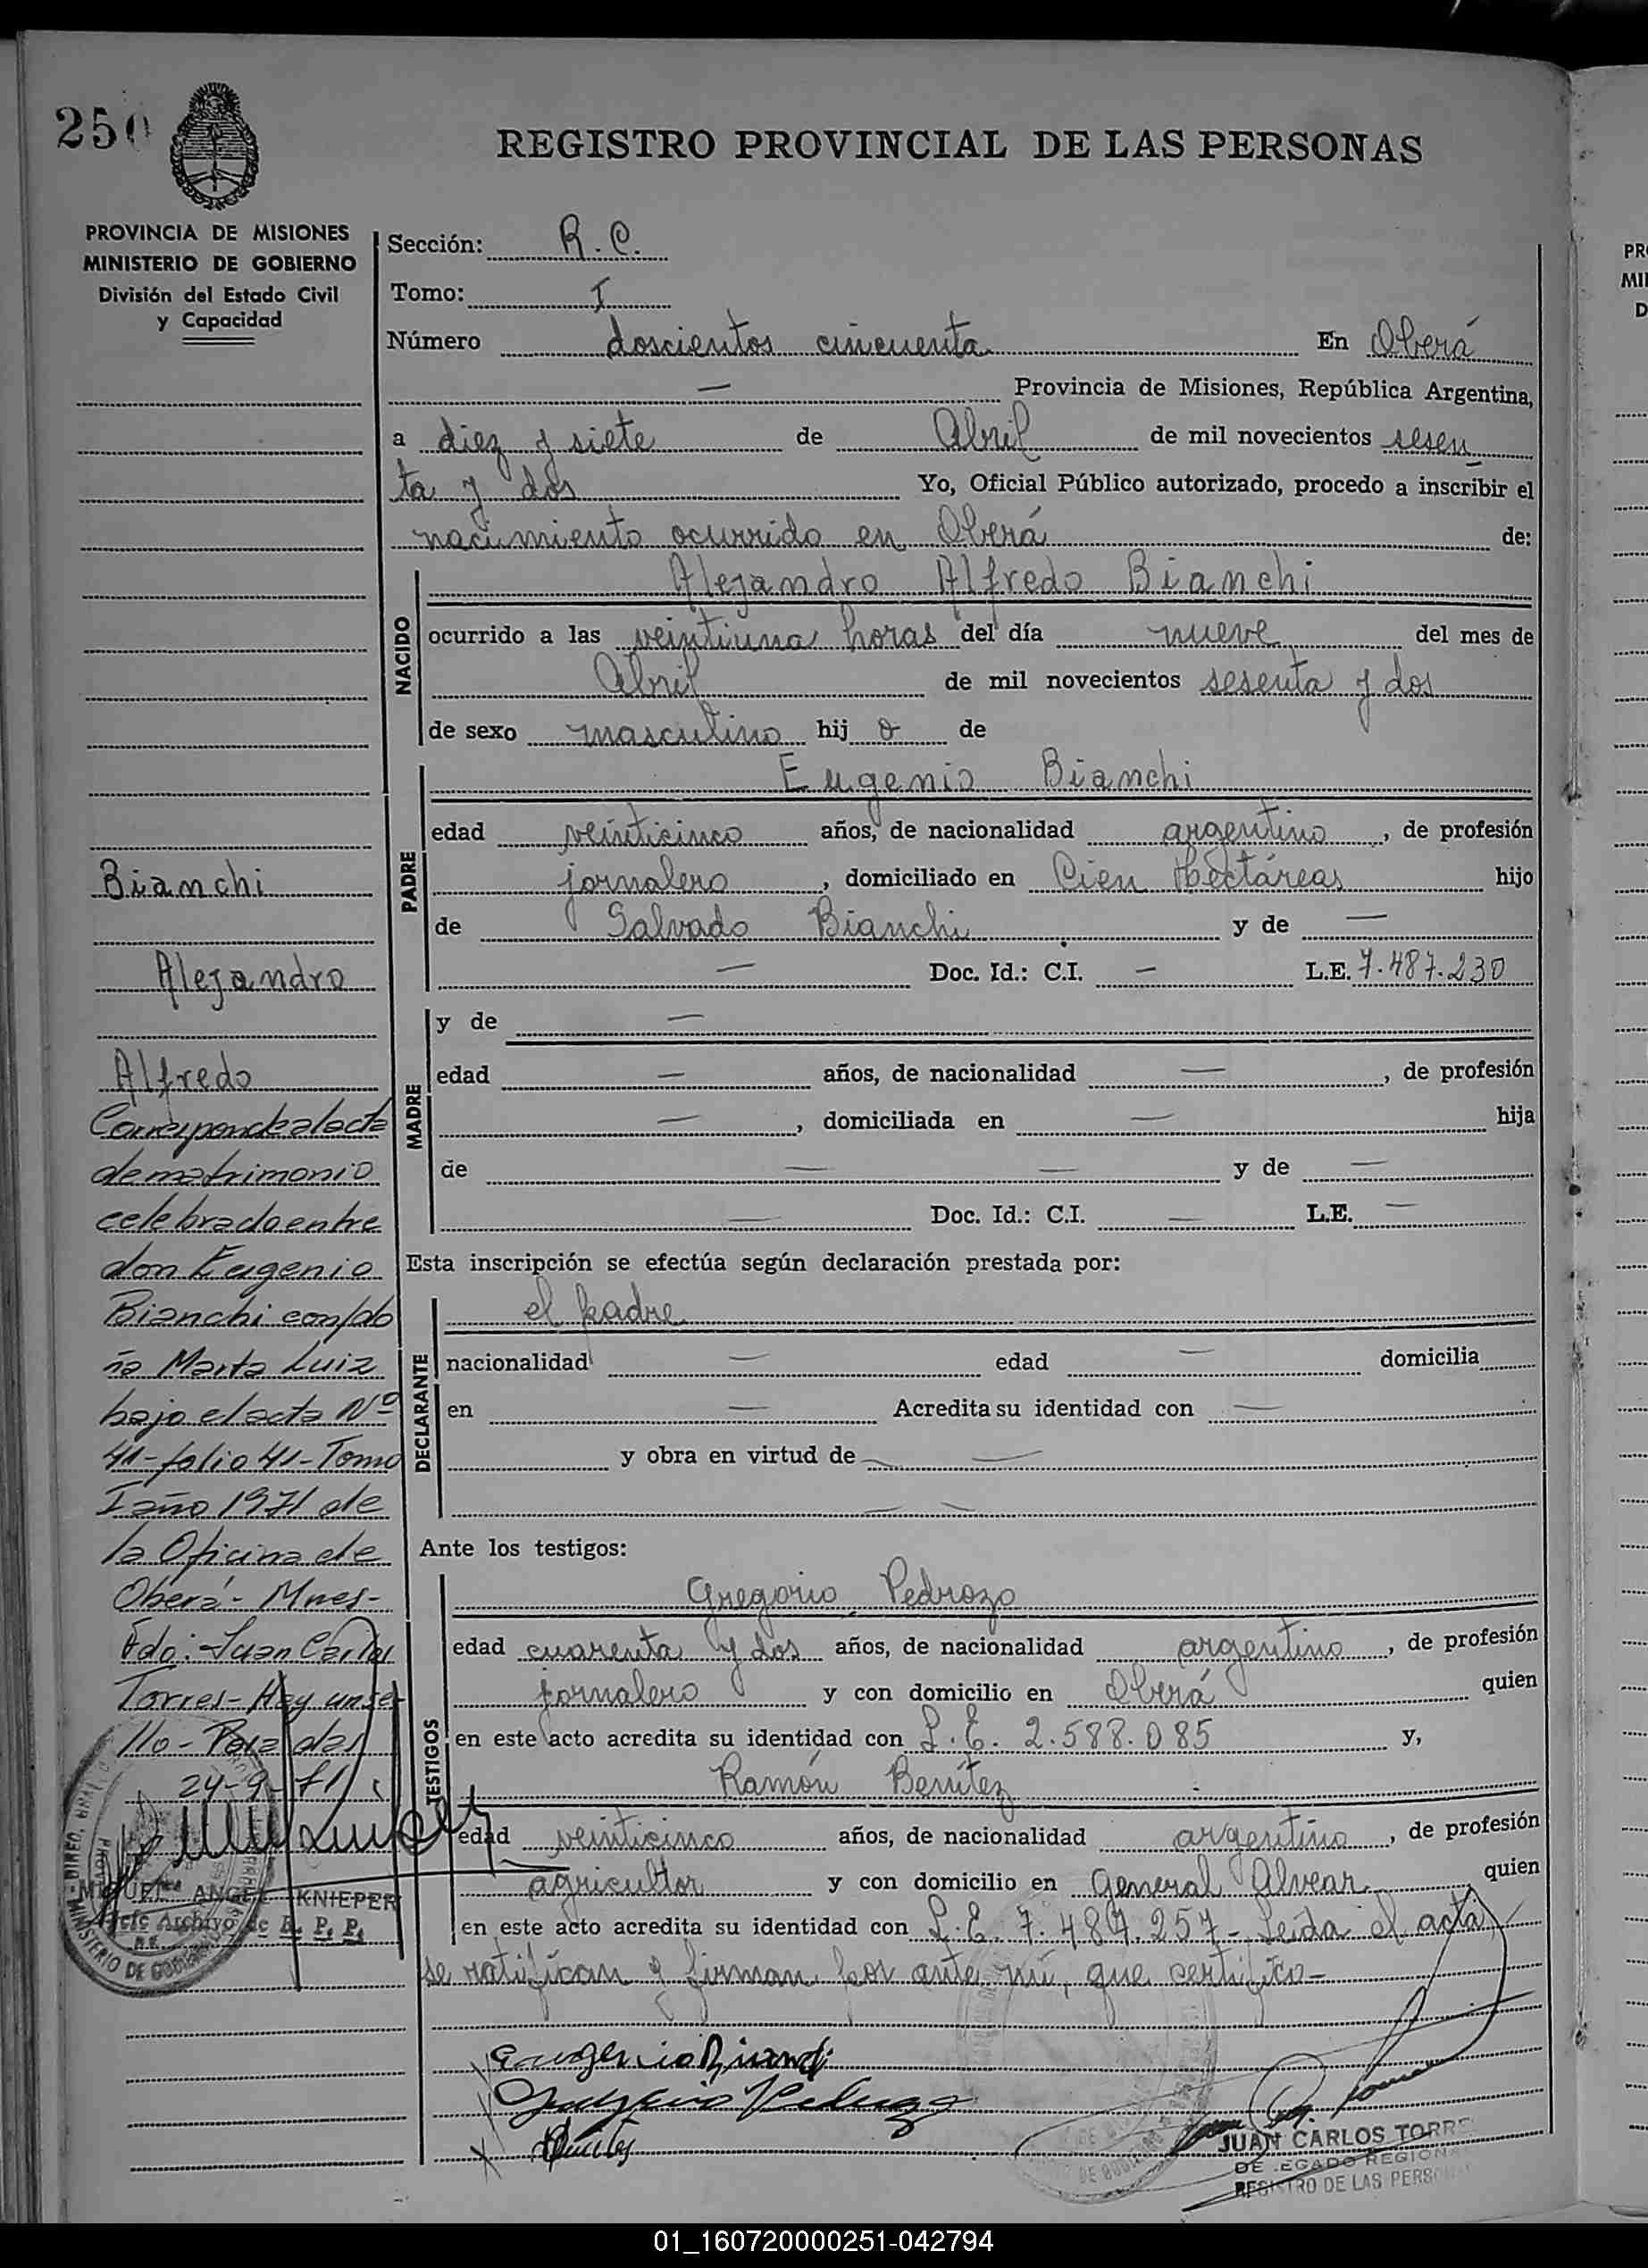 250
REGISTRO PROVINCIAL DE LAS PERSONAS
PROVINCIA DE MISIONES
MINISTERIO DE GOBIERNO
División del Estado Civil
y Capacidad
Sección: R. C.
Tomo: I
Número doscientos cincuenta En Oberá
— Provincia de Misiones, República Argentina,
a diez y siete de Abril de mil novecientos sesen
ta y dos Yo, Oficial Público autorizado, procedo a inscribir el
nacimiento ocurrido en Oberá de:
NACIDO
Alejandro Alfredo Bianchi
ocurrido a las veintiuna horas del día nueve del mes de
Abril de mil novecientos sesenta y dos
de sexo masculino hij o de
PADRE
Eugenio Bianchi
edad veinticinco años, de nacionalidad argentino, de profesión
jornalero, domiciliado en Cien Hectáreas hijo
de Salvado Bianchi y de —
— Doc. Id.: C.I. — L.E. 7.487.230
MADRE
y de —
edad — años, de nacionalidad —, de profesión
—, domiciliada en — hija
de — — y de —
— Doc. Id.: C.I. — L.E. —
Esta inscripción se efectúa según declaración prestada por:
DECLARANTE
el padre
nacionalidad — edad — domicilia
en — Acredita su identidad con —
y obra en virtud de —
— —
Ante los testigos:
TESTIGOS
Gregorio Pedrozo
edad cuarenta y dos años, de nacionalidad argentino, de profesión
jornalero y con domicilio en Oberá quien
en este acto acredita su identidad con L.E. 2.588.085 y,
Ramón Benítez
edad veinticinco años, de nacionalidad argentino, de profesión
agricultor y con domicilio en General Alvear quien
en este acto acredita su identidad con L.E. 7.487.257- Leída el acta
se ratifican y firman por ante mí, que certifico-
Bianchi
Alejandro
Alfredo
Corresponde al acta
de matrimonio
celebrado entre
don Eugenio
Bianchi con do
ña Marta Luiz
bajo el acta Nº
41-folio 41-Tomo
I año 1971 de
la Oficina de
Oberá- Mnes-
Fdo:-Juan Carlos
Torres-Hay un se
llo- Posadas
24-9-71
MIGUEL ANGEL KNIEPER
Jefe Archivo de R. P. P.
MINISTERIO DE GOBIERNO
Eugenio Bianchi
Gregorio Pedrozo
JUAN CARLOS TORRE
DELEGADO REGIONA
REGISTRO DE LAS PERSO
PR
MI
D
01_160720000251-042794